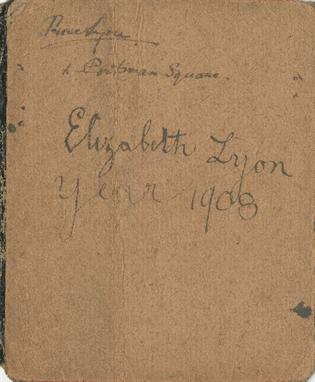 Rose Lyon.
Portman Square.
Elizabeth Lyon
Year 1908